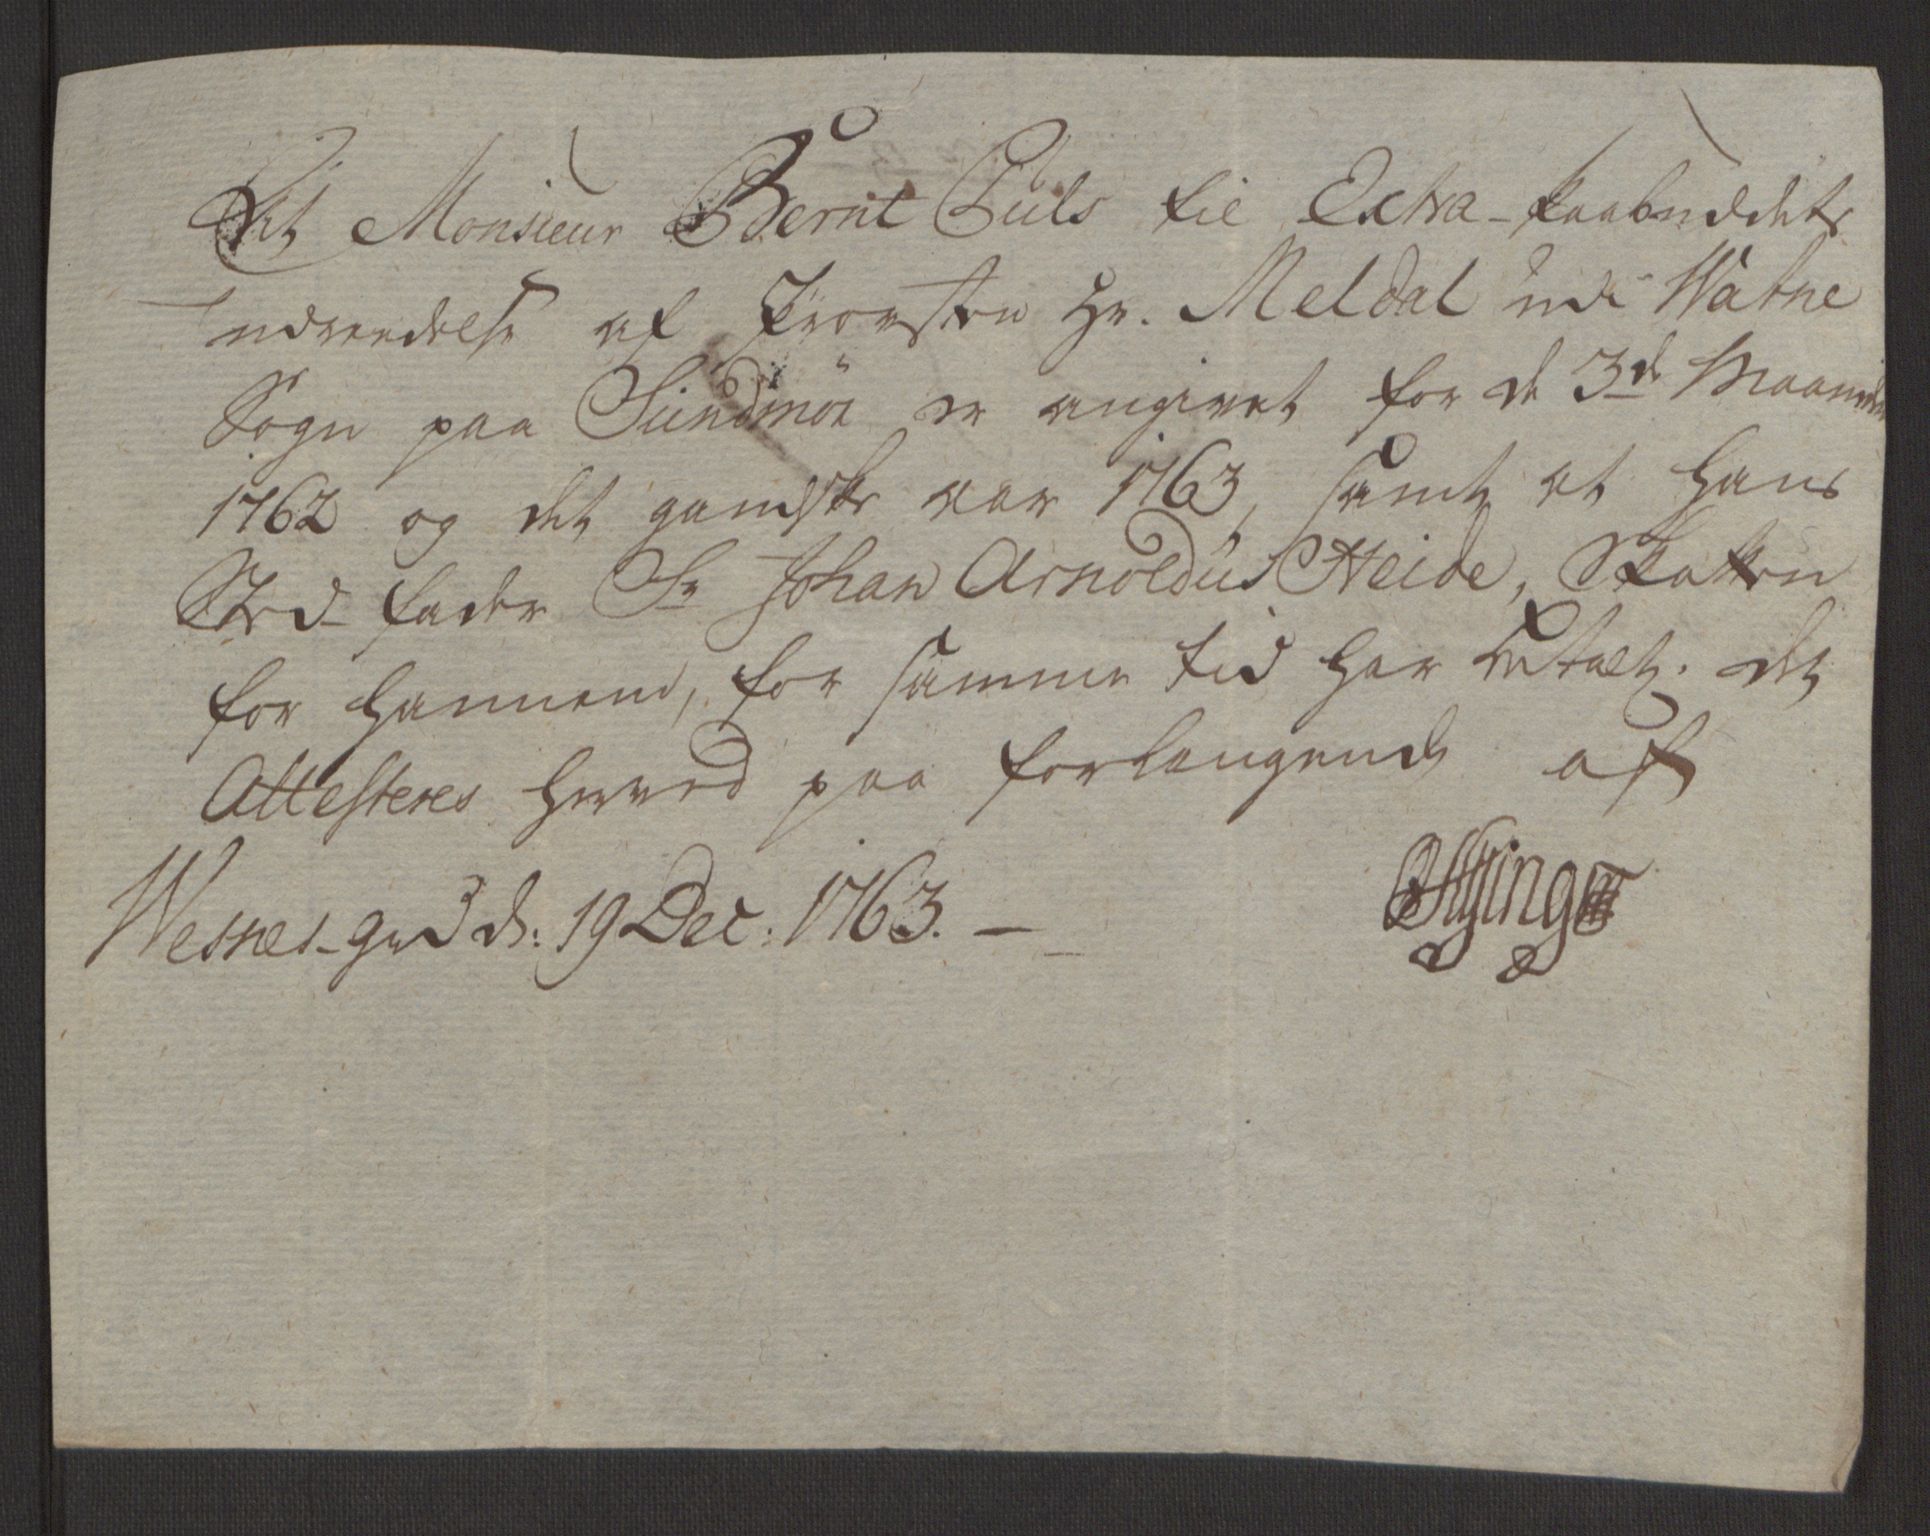 At Monsieur Bernt Buls til Extra-paabuddets
udreedelse af Provsten Hr. Meldal udi Watne
Sogn paa Sündmör er angivet for de 3de Maaneder
1762 og det gandske aar 1763, samt at hans
Sted-fader Sr Johan Arnoldüs Heide, Skatten
for hannem, for samme tid har betalt. det
Attesteres herved paa forlangende af
Westnes-grd d: 19 Dec: 1763. —